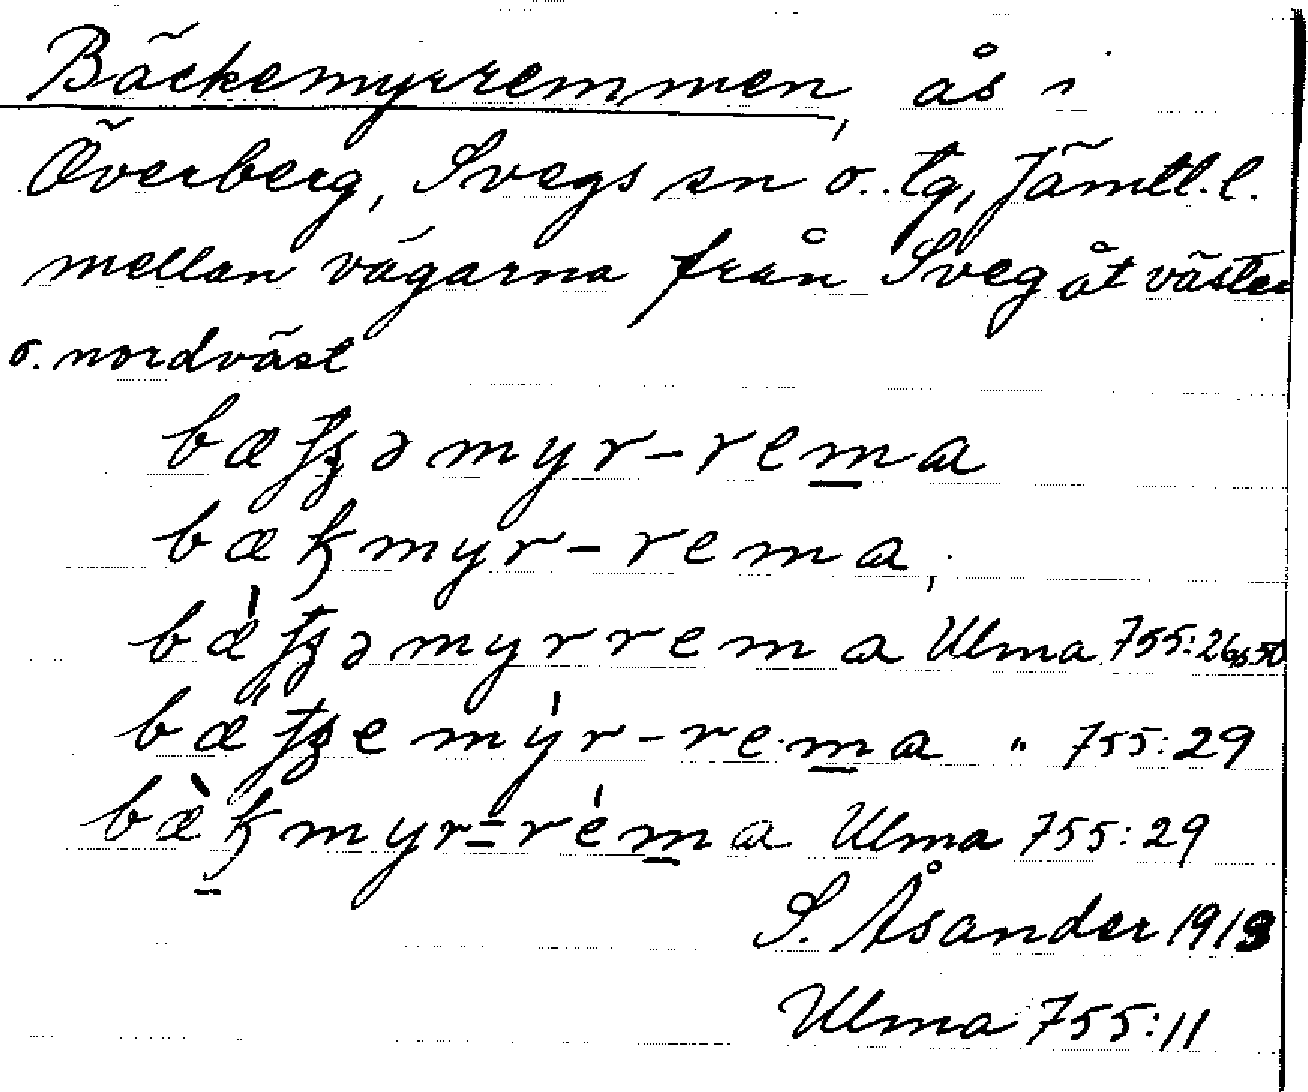 Bäckemyrremmen, ås i
Överberg, Svegs sn o. tg, Jämtl. l.
mellan vägarna från Sveg åt väster
o. nordväst
bæƫʒəmyr-rema
bækmyr-rema,
bæ̀ƫʒəmyrrema Ulma 755:26, 50
bæ̀ƫʒemýr-rema " 755:29
bæ̀kmyr=réma Ulma 755:29
S. Åsander 1913
Ulma 755:11